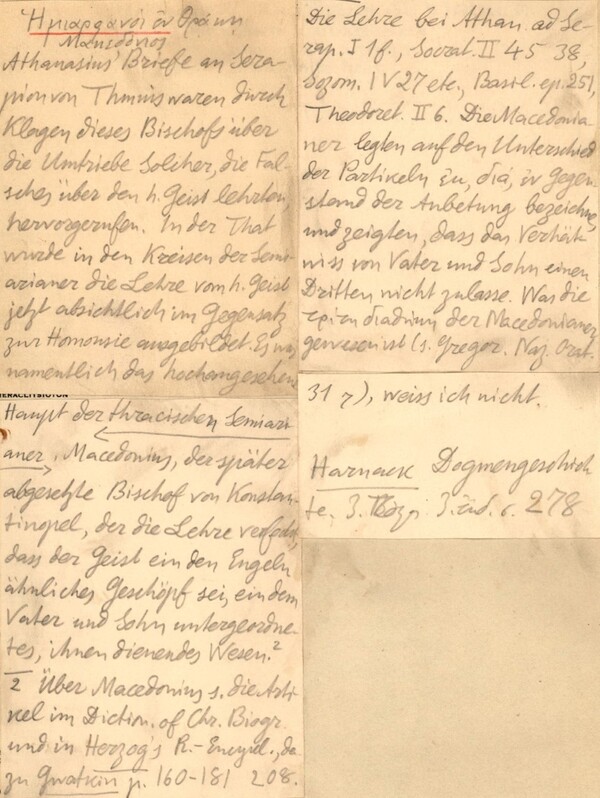 Ἡμιαρριανοὶ ἐν Θρᾴκῃ
Μακεδόνιος
Athanasius' Briefe an Sera-
pion von Thmuis waren durch
Klagen dieses Bischofs über
die Umtriebe Solcher, die Fal-
sches über den h. Geist lehrten,
hervorgerufen. In der That
wurde in den Kreisen der Semi-
arianer die Lehre vom h. Geist
jetzt absichtlich im Gegensatz
zur Homousie ausgebildet. Es war
namentlich das hochangesehene
ΤΕRACLITSIOTON
Haupt der thracischen Semiari-
aner, Macedonius, der später
abgesetzte Bischof von Konstan-
tinopel, der die Lehre verfocht,
dass der Geist ein den Engeln
ähnliches Geschöpf sei, ein dem
Vater und Sohn untergeordne-
tes, ihnen dienendes Wesen.²
2 Über Macedonius s. die Arti-
kel im Diction. of Chr. Biogr.
und in Herzog's R.-Encykl., da-
zu Gwatkin p. 160-181 208.
Die Lehre bei Athan. ad Se-
rap. I 1 f., Socrat. II 45 38,
Sozom. IV 27 etc., Basil. ep. 251,
Theodoret. II 6. Die Macedonia-
ner legten auf den Unterschied
der Partikeln ἐκ, διά, ἐν Gegen-
stand der Anbetung bezeichne,
und zeigten, dass das Verhält-
niss von Vater und Sohn einen
Dritten nicht zulasse. Was die
der Macedonianer
gewesen ist (s. Gregor. Naz. Orat.
31 7), weiss ich nicht.
Harnack Dogmengeschich-
te, 3. 278